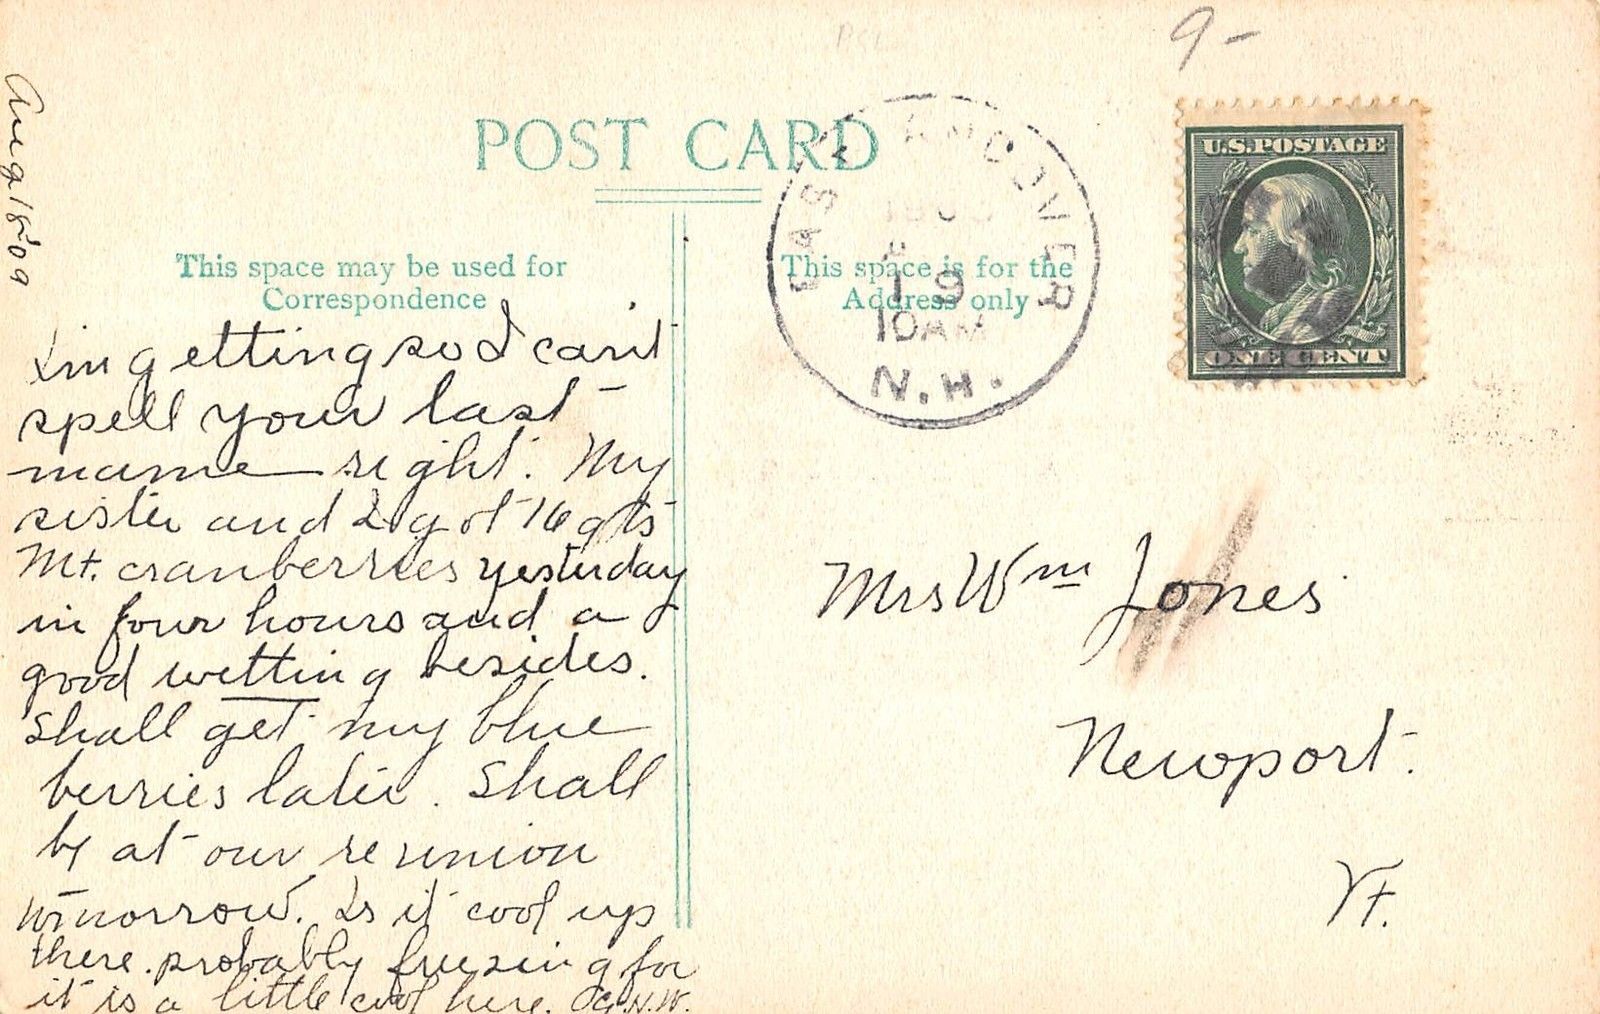 9-
Aug 18-09
POST CARD
EAST ANDOVER
19
10AM
N.H.
U.S. POSTAGE
ONE CENT
This space may be used for
Correspondence
This space is for the
Address only
Im getting so I can't
spell your last
name right. My
sister and I got 16 qts
Mt. cranberries yesterday
in four hours and a
good wetting besides.
Shall get my blue
berries later. Shall
by at our reunion
tomorrow. Is it cool up
there. probably freezing for
it is a little cool here. G.N.W.
Mrs Wm Jones
Newport.
Vt.